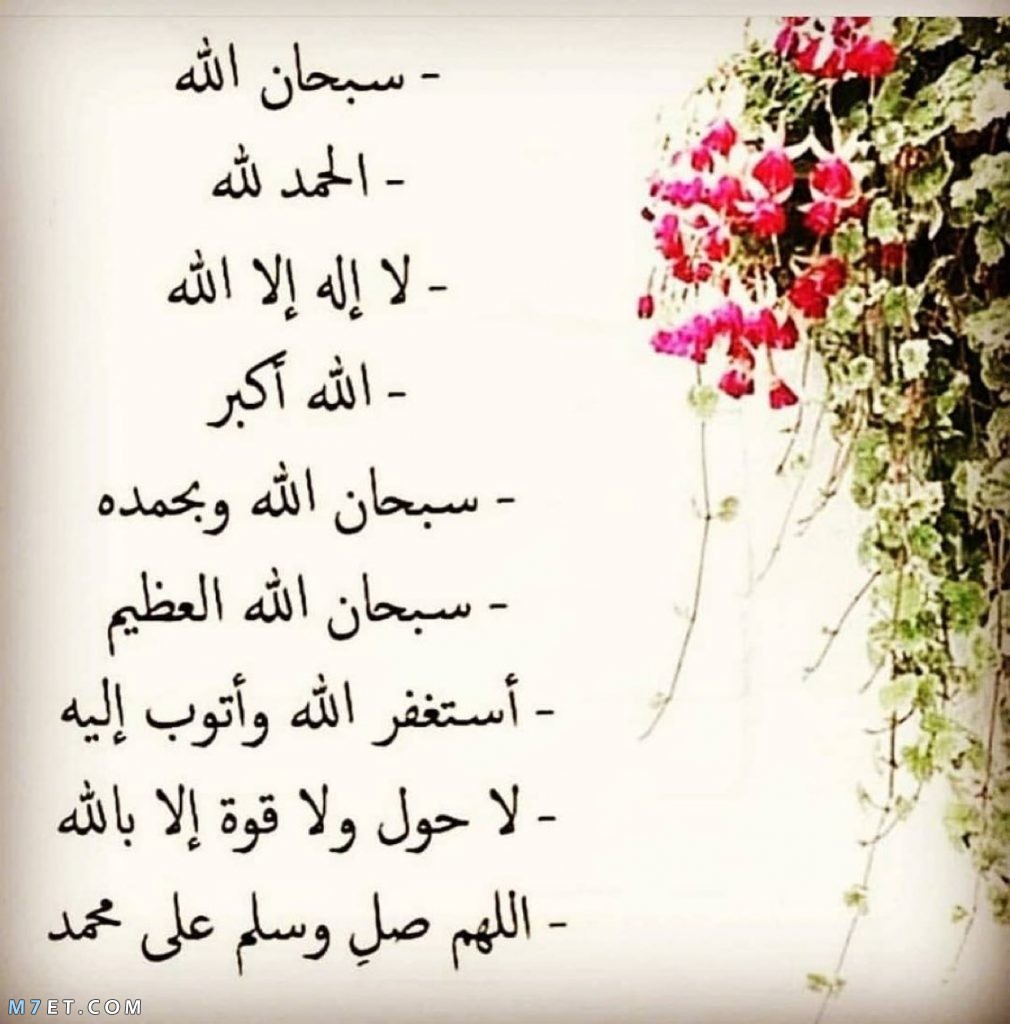 - سبحان الله
- الحمد لله
- لا إله إلا الله
- الله أكبر
- سبحان الله وبحمده
- سبحان الله العظيم
- أستغفر الله وأتوب إليه
- لا حول ولا قوة إلا بالله
- اللهم صلِ وسلم على محمد
M7ET.COM